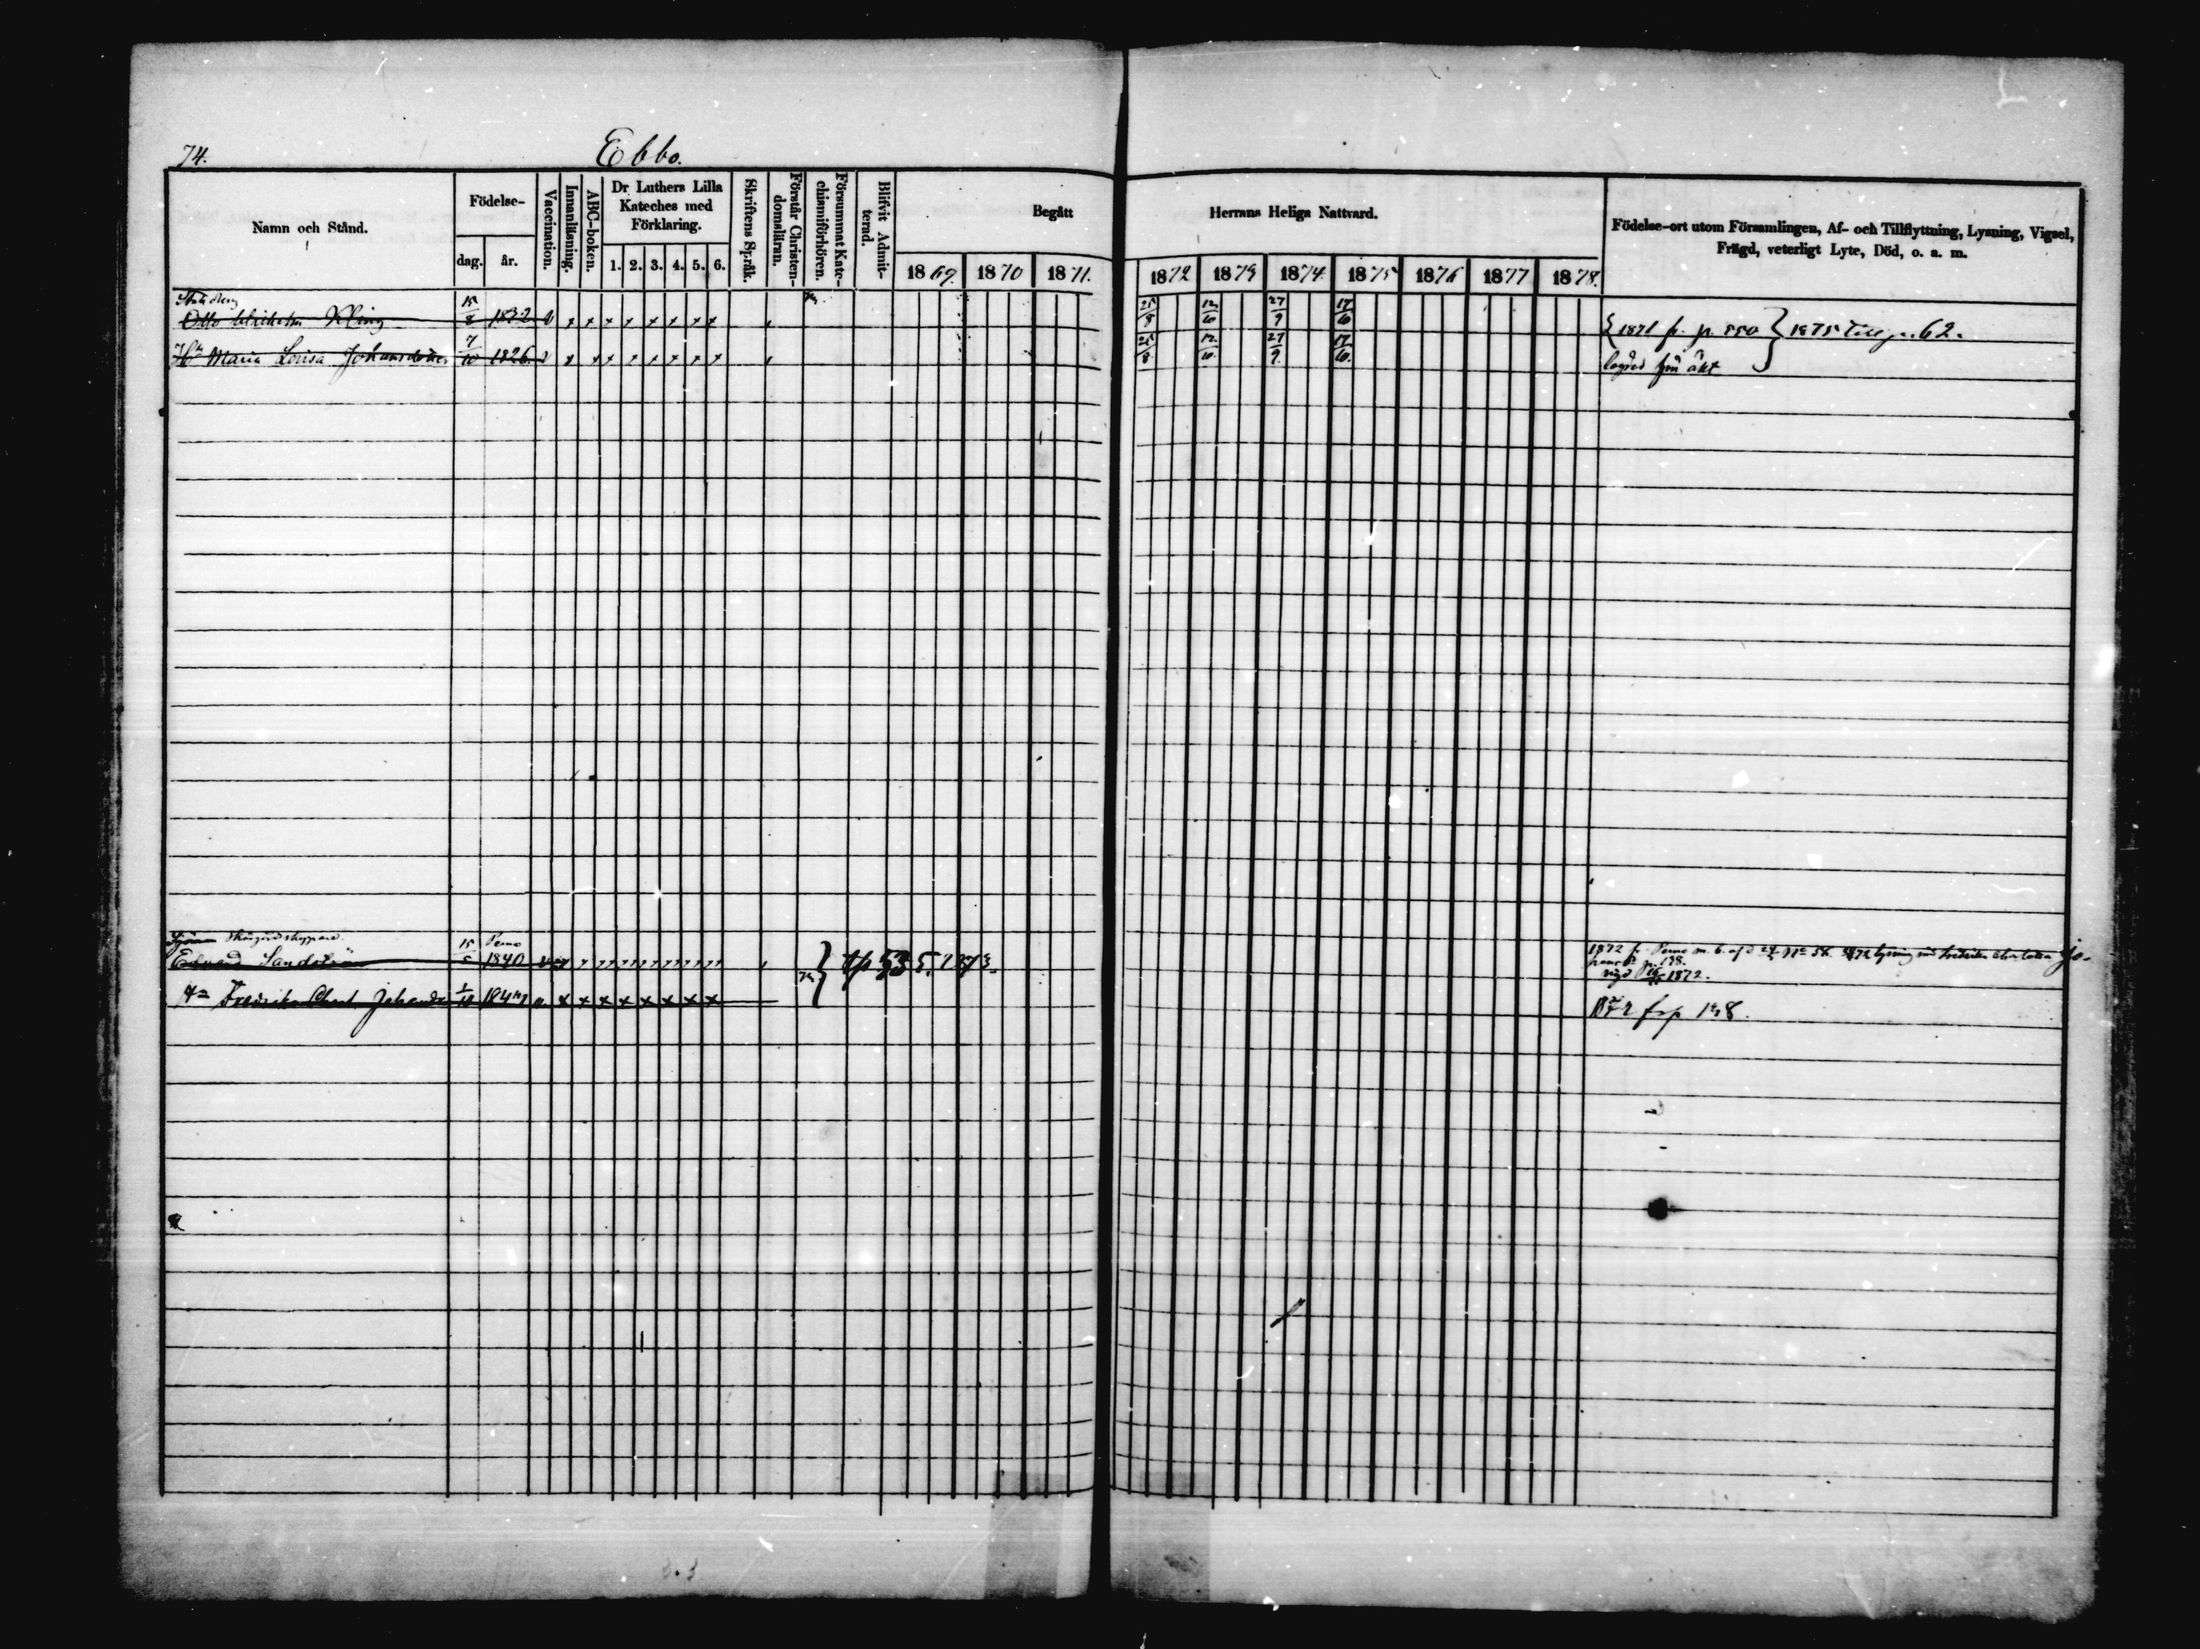 74.
Ebbo.
Namn och Stånd.
Födelse-
dag.
år.
Vaccination.
Innanläsning.
ABC-boken.
Dr Luthers Lilla
Kateches med
Förklaring.
1. 2. 3. 4. 5. 6.
Skriftens Språk.
Förstår Christen-
domsläran.
Försummat Kate-
chismiförhören.
Blifvit Admit-
terad.
Begått
1869. 1870 1871.
Herrans Heliga Nattvard.
1872 1873 1874 1875 1876 1877 1878.
Födelse-ort utom Församlingen, Af- och Tillflyttning, Lysning, Vigsel,
Frägd, veterligt Lyte, Död, o. a. m.
Otto Kling 15/8 1832 x x x x x x x x 25/8 12/10 27/9 17/10 1871 fr. p. 550 } 1875 till p. 62.
Hu Maria Lovisa Johansdotter 7/10 1826 x x x x x x x x 25/8 12/10 27/9 17/10
Skärgårdsskeppare
Edvard Sandström 15 Perno 1840 1872 fr. Perno lysning med Fredrika
p. 138.
vigd 1872.
Fredrika 10 x x x x x x x x 1872 frp 138.